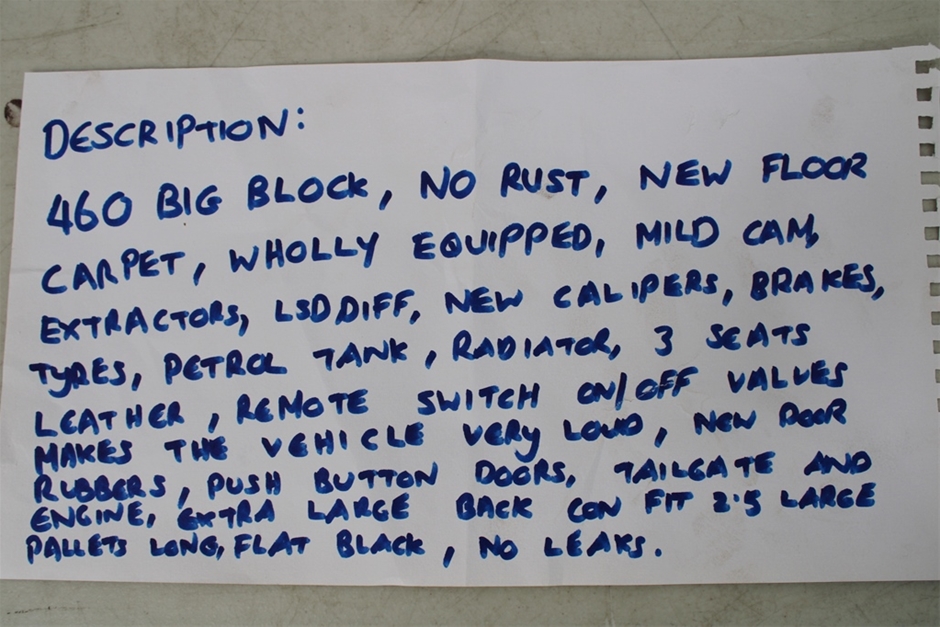 DESCRIPTION:
460 BIG BLOCK, NO RUST, NEW FLOOR
CARPET, WHOLLY EQUIPPED, MILD CAM,
EXTRACTORS, LSD DIFF, NEW CALIPERS, BRAKES,
TYRES, PETROL TANK, RADIATOR, 3 SEATS
LEATHER, REMOTE SWITCH ON/OFF VALVES
MAKES THE VEHICLE VERY LOUD, NEW DOOR
RUBBERS, PUSH BUTTON DOORS, TAILGATE AND
ENGINE, EXTRA LARGE BACK CON FIT 2.5 LARGE
PALLETS LONG, FLAT BLACK, NO LEAKS.